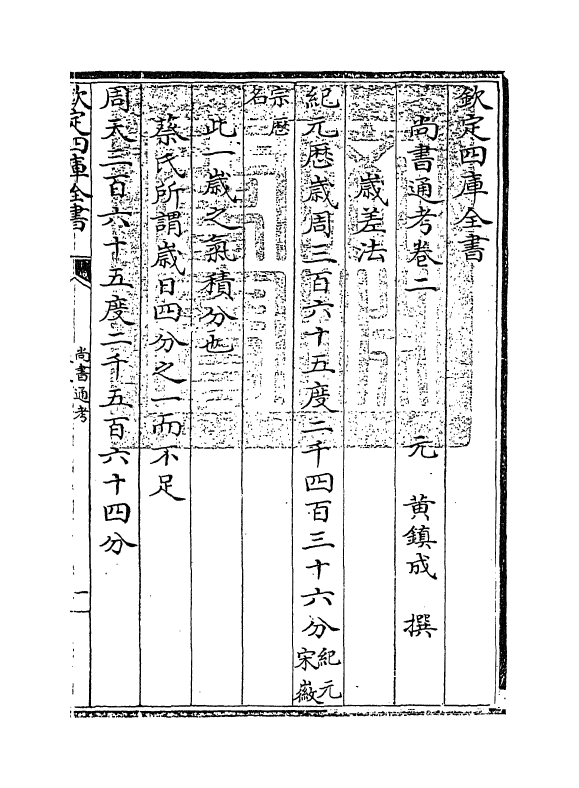 欽定四庫全書
尚書通考卷二　元　黃鎮成　撰
歲差法
紀元厯歲周三百六十五度二千四百三十六分紀元宋徽
宗厯名
此一歲之氣積分也
蔡氏所謂歲日四分之一而不足
周天三百六十五度二千五百六十四分
欽定四庫全書
尚書通考
一